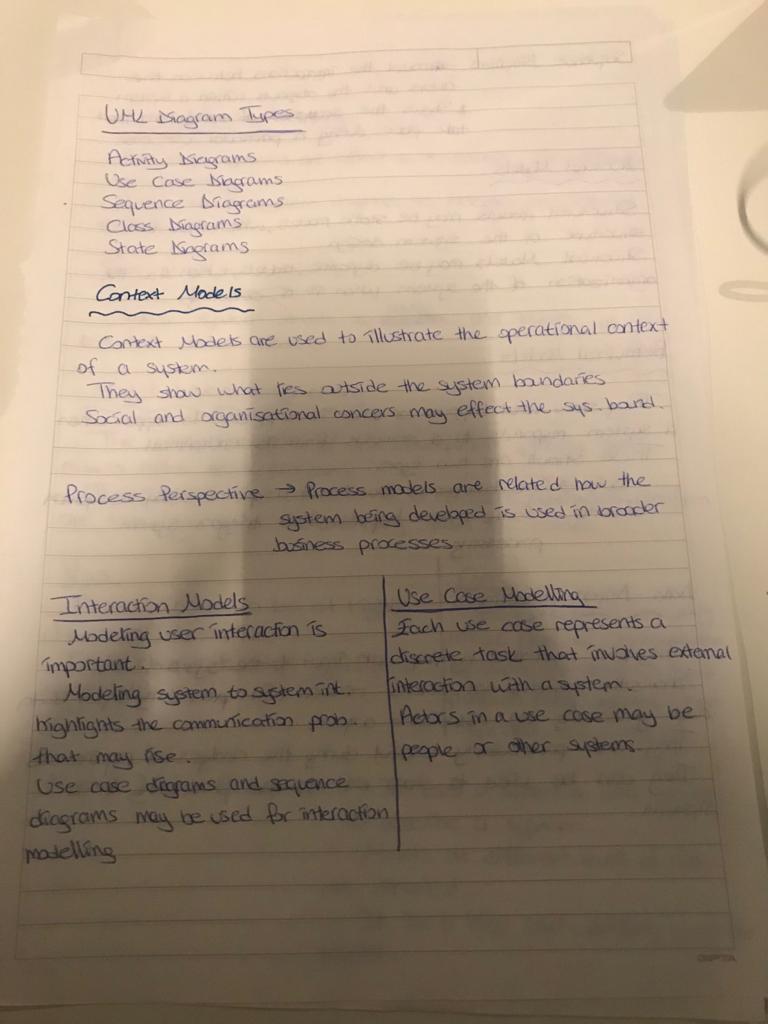 UML Diagram Types
Activity Diagrams
Use Case Diagrams
Sequence Diagrams
Class Diagrams
State Diagrams
Context Models
Context Models are used to illustrate the operational context
of a system.
They show what lies outside the system bandaries
Social and organisational concers may effect the sys. band.
Process Perspective → Process models are related how the
system being developed is used in broader
business processes.
Interaction Models
Modeling user interaction is
important.
Modeling system to system int.
highlights the communication prob.
that may rise.
Use case diagrams and sequence
diagrams may be used for interaction
modelling
Use Case Modelling
Each use case represents a
discrete task that involves external
interaction with a system.
Actors in a use case may be
people or other systems.